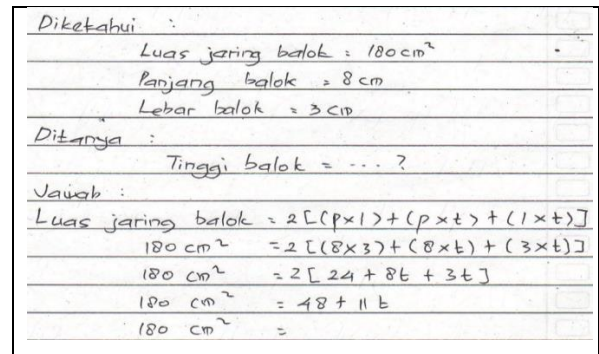 Diketahui :
Luas jaring balok = 180 cm²
Panjang balok = 8 cm
Lebar balok = 3 cm
Ditanya :
Tinggi balok = ... ?
Jawab :
Luas jaring balok = 2 [(p×l) + (p×t) + (l×t)]
180 cm² = 2 [(8×3) + (8×t) + (3×t)]
180 cm² = 2 [ 24 + 8t + 3t ]
180 cm² = 48 + 11 t
180 cm² =